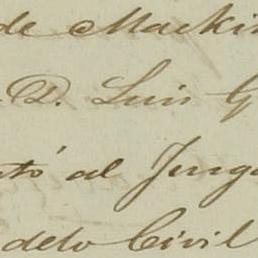 de Mackin
D. Luis G
ntó al Juzga
delo Civil